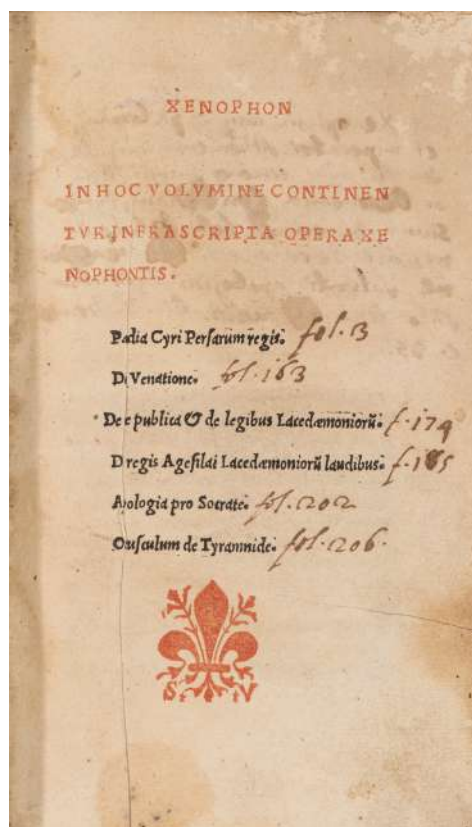 XENOPHON
IN HOC VOLVMINE CONTINEN
TVR INFRASCRIPTA OPERA XE
NOPHONTIS.
Pædia Cyri Persarum regis. fol. 3
D Venatione. fol. 163
De e publica & de legibus Lacedæmoniorū. f. 174
D regis Agesilai Lacedæmoniorū laudibus. f. 185
A ologia pro Socrate. fol. 202
O usculum de Tyrannide. fol. 206.
S V